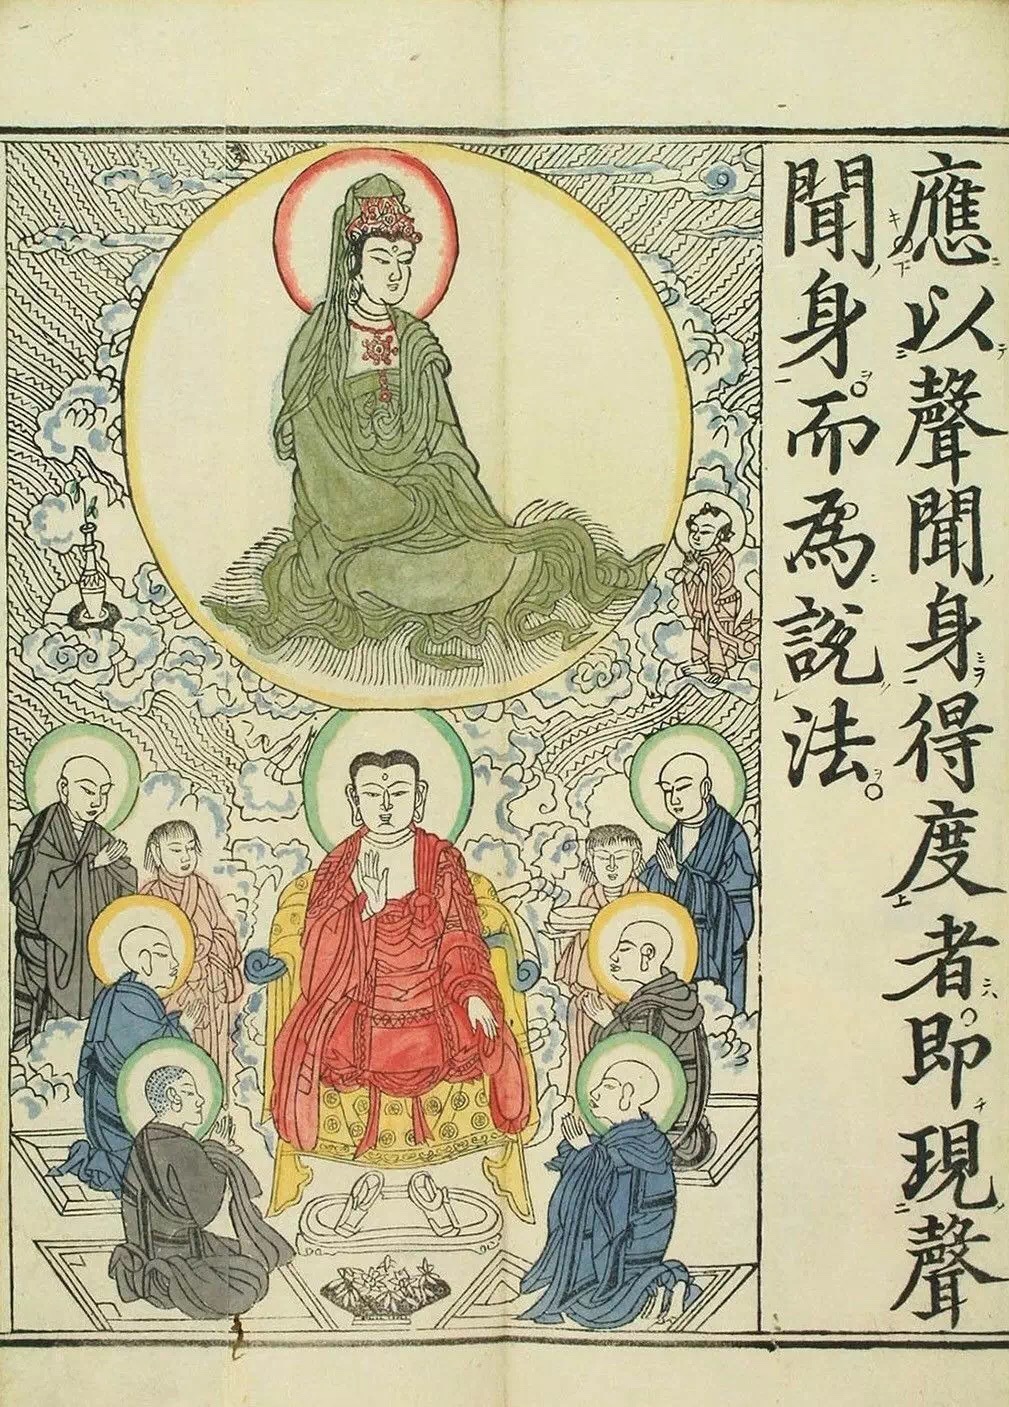 應以聲聞身得度者即現聲
聞身而爲說法